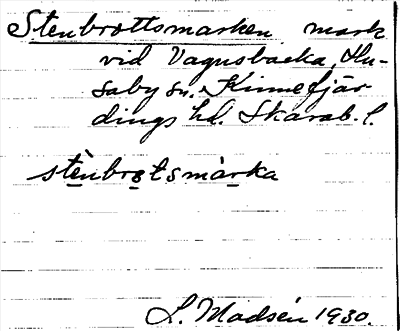 Stenbrottsmarken mark
vid Vagnsbacka, Hu-
saby sn. Kinnefjär-
dings hd. Skarab. l.
stènbrotsmàrka
L. Madsén 1930.